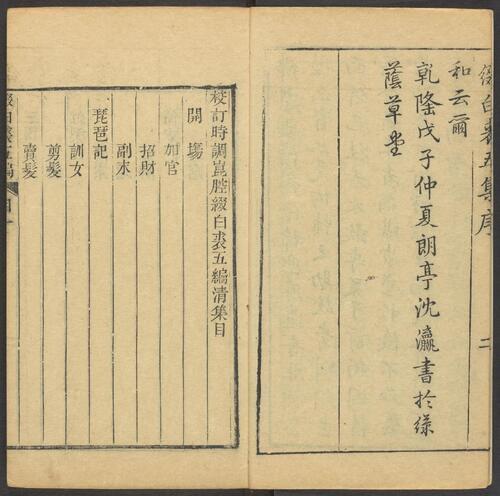 綴白裘五集序
二
和云爾
乾隆戊子仲夏朗亭沈瀛書於綠
蔭草堂
校訂時調崑腔綴白裘五編清集目
開塲
加官
招財
副末
琵琶記
訓女
剪髮
賣髮
綴白裘五編
目
一